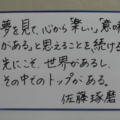 夢を見て、心から「楽しい」「意味
がある。」と思えることを、続ける
先にこそ、世界があるし、
その中でのトップがある。
佐藤琢磨